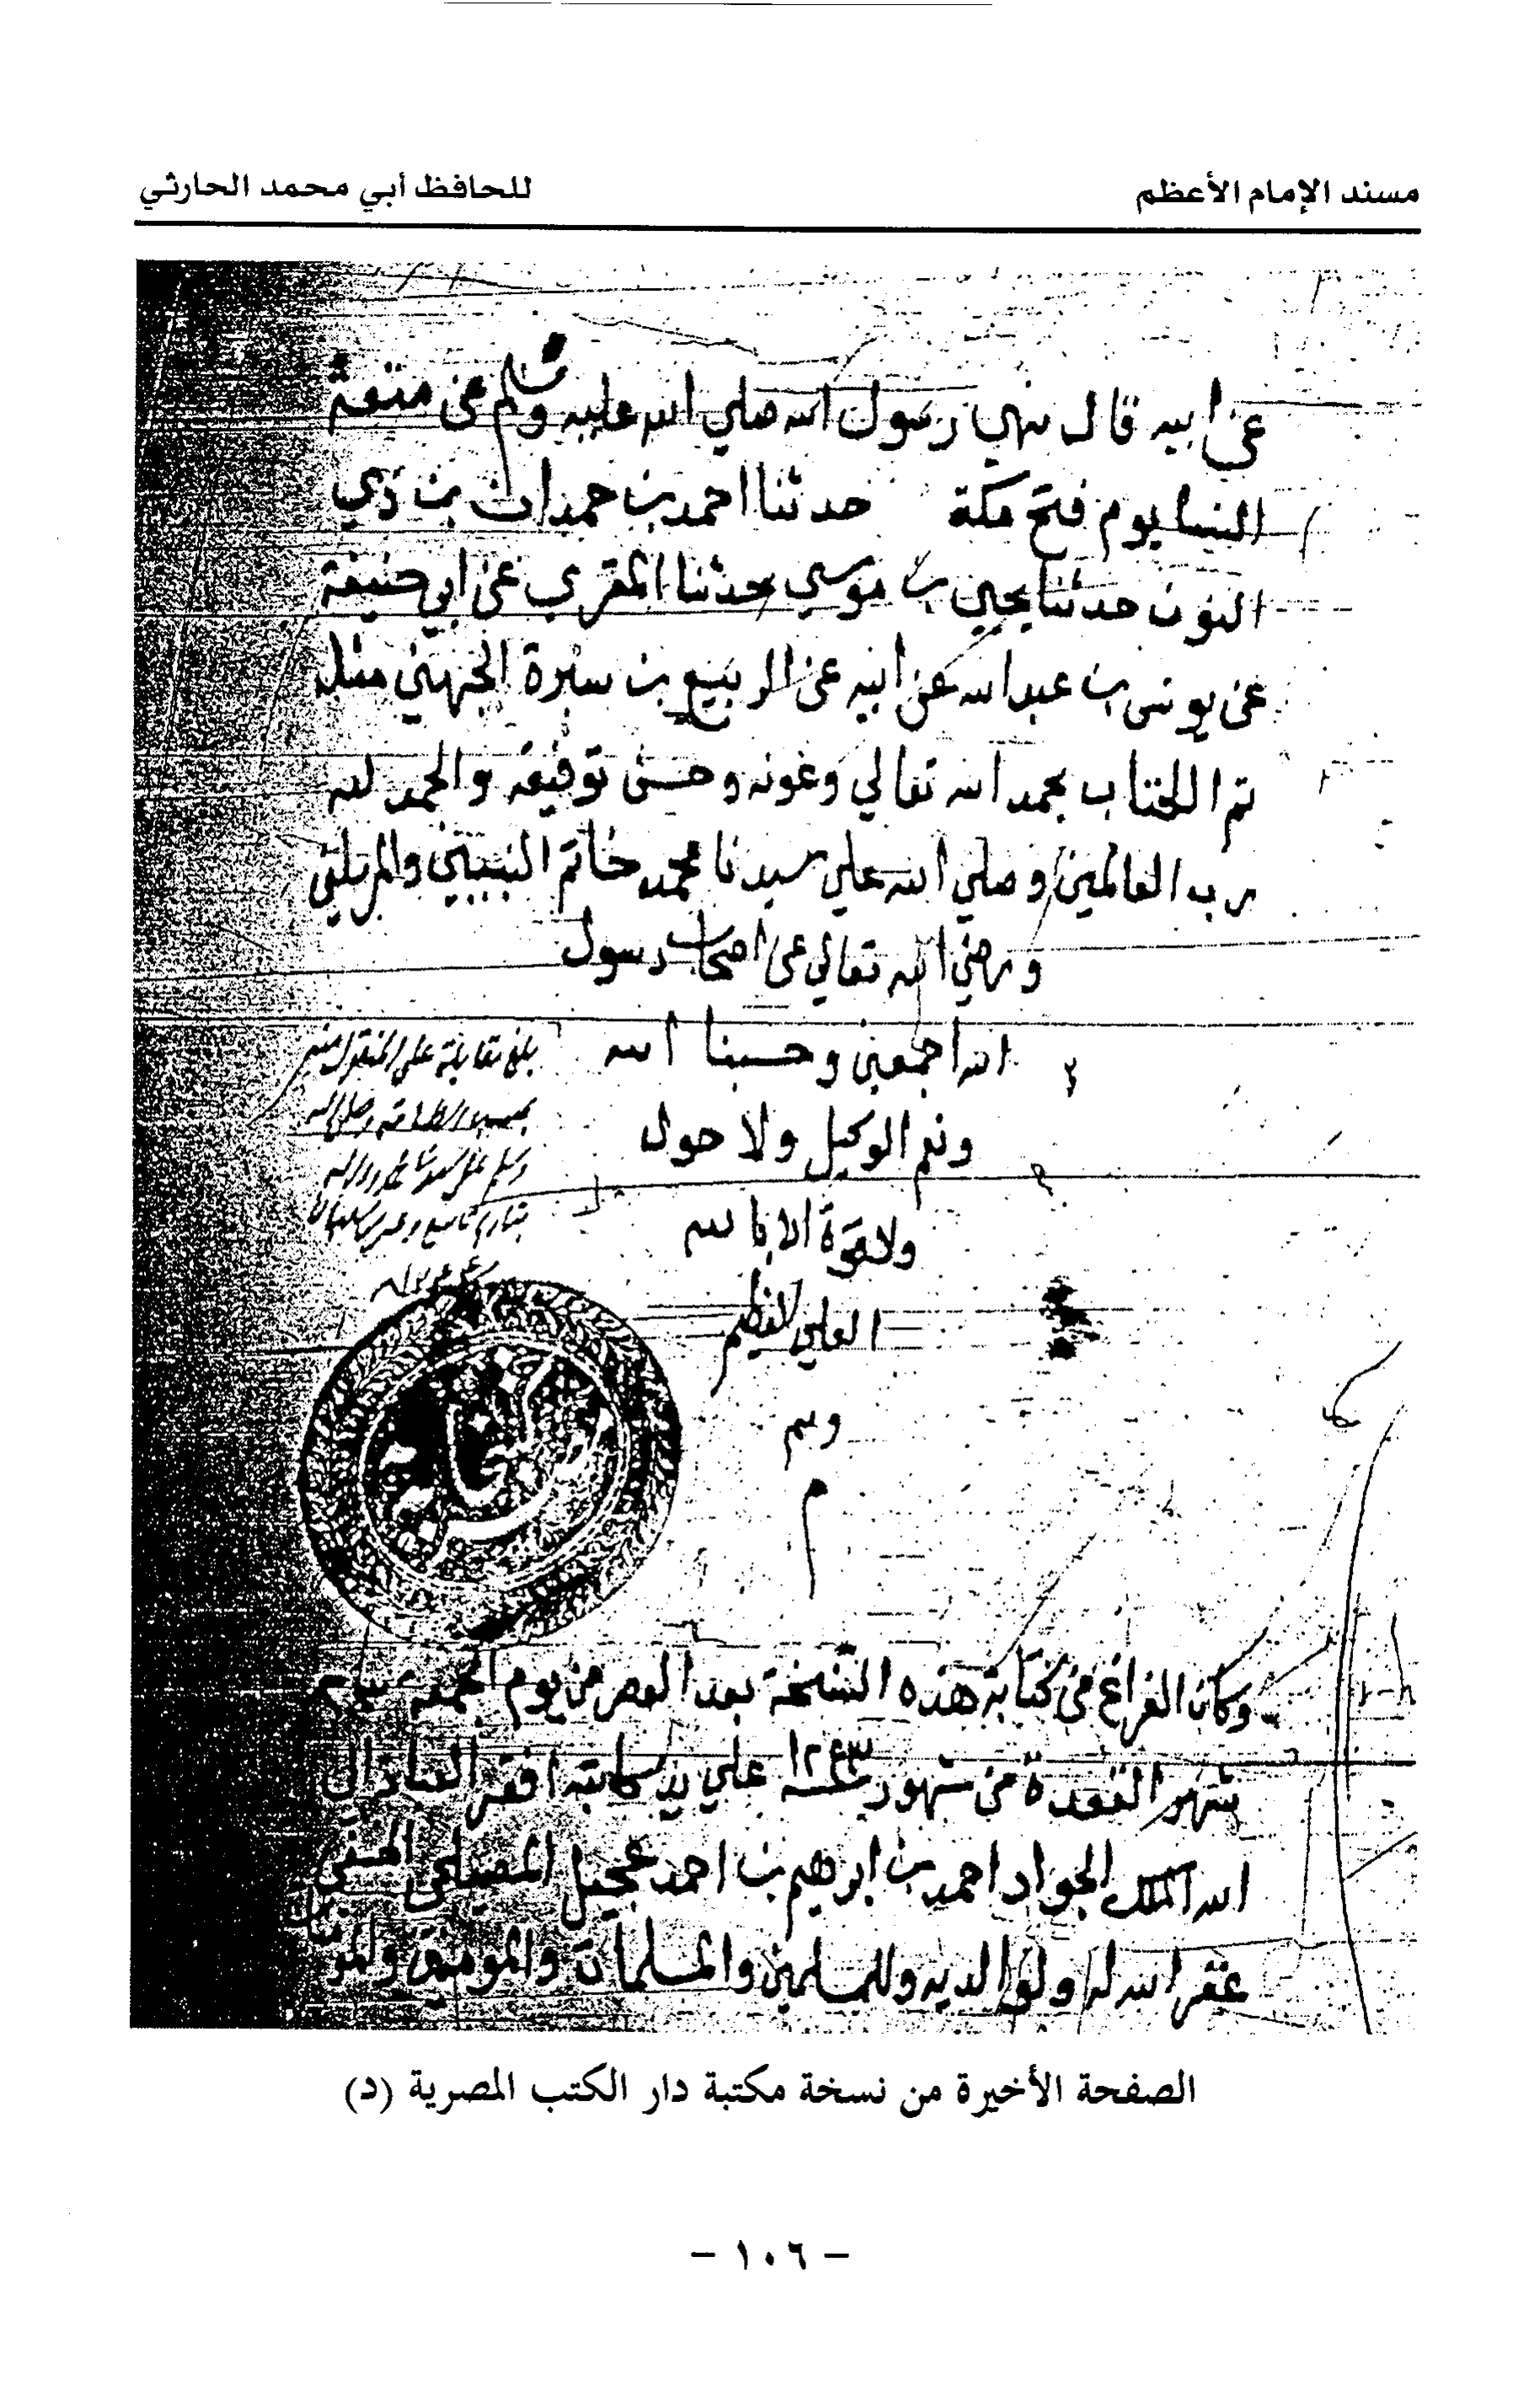 مسند الإمام الأعظم
للحافظ أبي محمد الحارثي
عن ابيه قال نهي رسول الله صلي الله عليه وسلم عن متعة
النسا يوم فتح مكة حدثنا احمد بن حمدان بن ذي
النون حدثنا يحيي بن موسي حدثنا المقري عن ابي حنيفة
عن يونس بن عبد الله عن ابيه عن الربيع بن سبرة الجهني مثله
تم الكتاب بحمد الله تعالي وعونه وحسن توفيقه والحمد لله
رب العالمين وصلي الله علي سيدنا محمد خاتم النبيين والمرسلين
ورضي الله تعالي عن اصحاب رسول
الله اجمعين وحسبنا الله
ونعم الوكيل ولا حول
ولا قوة الا بالله
العلي العظيم
م
بلغ مقابلة علي المنقول منه
بحسب الطاقة وصلي الله
وسلم علي سيدنا محمد واله
وكان الفراغ من كتابة هذه النسخة بعد العصر من يوم الجمعة
شهر القعدة من شهور سنة ١٢٤٣ علي يد كاتبه افقر العباد الي
الله الملك الجواد احمد بن ابرهيم بن احمد عجيل
غفر الله له ولوالديه وللمسلمين والمسلمات والمومنين
الصفحة الأخيرة من نسخة مكتبة دار الكتب المصرية (د)
- ١٠٦ -